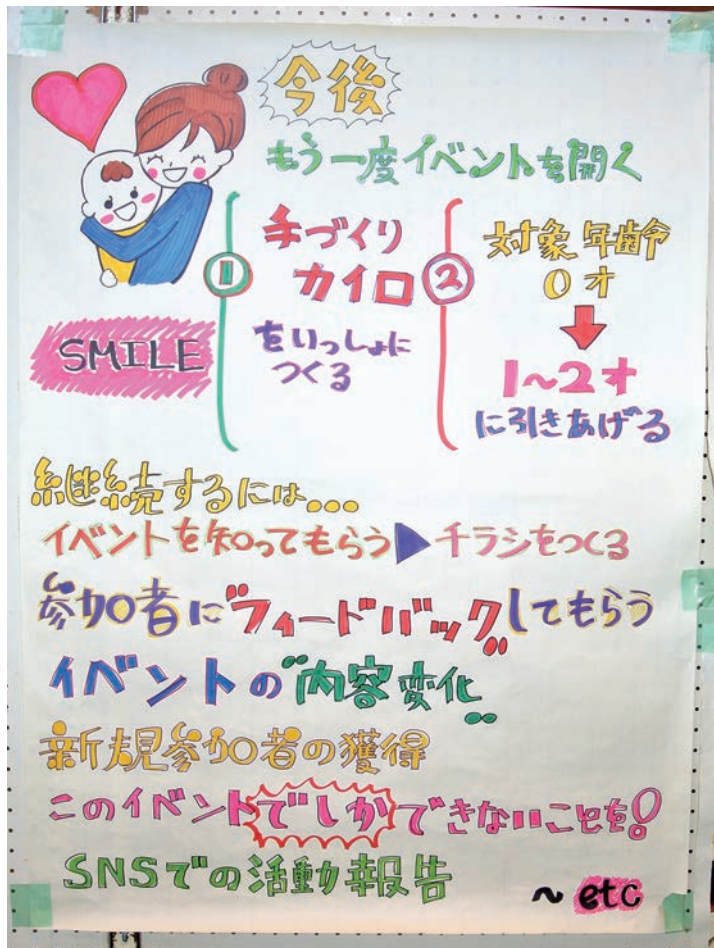 今後
もう一度イベントを開く
SMILE
1
手づくり
カイロ
をいっしょに
つくる
2
対象年齢
0才
1~2才
に引きあげる
継続するには...
イベントを知ってもらう▶チラシをつくる
参加者に"フィードバック"してもらう
イベントの"内容変化"
新規参加者の獲得
このイベントでしかできないことを!
SNSでの活動報告
~etc